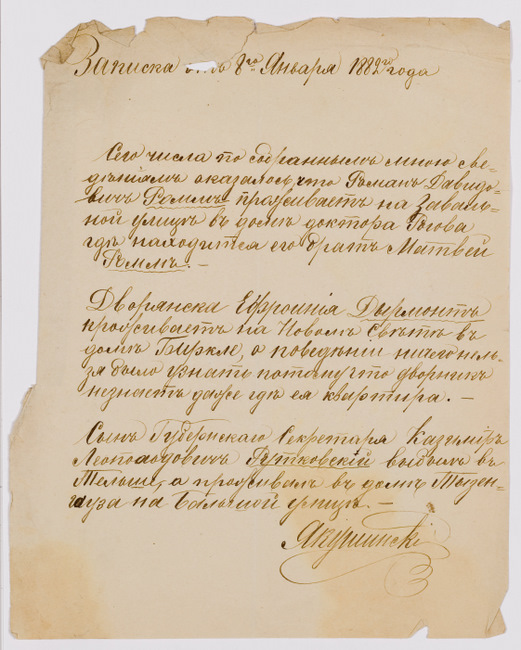 Записка отъ 8го Января 1882 года
Сего числа по собраннымъ мною све-
дѣніямъ оказалось, что Романъ Давидо-
вичъ Роммъ проживаетъ на Заваль-
ной улицѣ въ домѣ доктора
гдѣ находится его братъ Матвей
Роммъ. —
Дворянска Ефроинія Дырмонтъ
проживаетъ на Новомъ Свѣтѣ въ
домѣ Биркле, о поведеніи ничего нель-
зя было узнать потому что дворникъ
незнаетъ даже гдѣ ея квартира. —
Сынъ Губернскаго Секретаря Казимiръ
Леопольдовичъ Гутковскій выбылъ въ
Тельши, а проживалъ въ домѣ Тызен-
гауза на Большой улицѣ. —